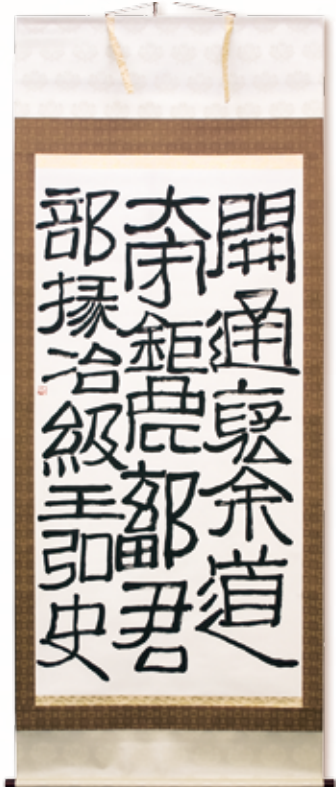 開通褒余道
太守鉅鹿鄐君
部掾治級王弘史